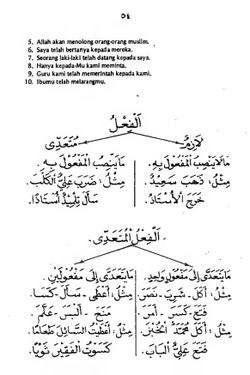 ٥٤
5. Allah akan menolong orang-orang muslim.
6. Saya telah bertanya kepada mereka.
7. Seorang laki-laki telah datang kepada saya.
8. Hanya kepada-Mu kami meminta.
9. Guru kami telah memerintah kepada kami.
10. Ibumu telah melarangmu.
اَلْفِعْلُ
لَازِمٌ مُتَعَدِّى
مَالَايَنْصِبُ الْمَفْعُوْلَ بِهِ. مَايَنْصِبُ الْمَفْعُوْلَ بِهِ
مِثْلُ: ذَهَبَ سَعِيْدٌ. مِثْلُ: ضَرَبَ عَلِيٌّ الْكَلْبَ.
خَرَجَ الْأُسْتَاذُ. سَأَلَ تِلْمِيْذٌ أُسْتَاذًا.
اَلْفِعْلُ الْمُتَعَدِّى.
مَايَتَعَدَّى إِلَى مَفْعُوْلٍ وَاحِدٍ. مَايَتَعَدَّى إِلَى مَفْعُوْلَيْنِ.
مِثْلُ: أَكَلَ - ضَرَبَ - نَصَرَ مِثْلُ: أَعْطَى - سَأَلَ - كَسَا.
فَتَحَ - كَسَرَ - أَمَرَ مَنَحَ - أَلْبَسَ - عَلَّمَ
مِثْلُ: أَكَلَ مُحَمَّدٌ الْخُبْزَ. مِثْلُ: أَعْطَيْتُ السَّائِلَ طَعَامًا.
فَتَحَ عَلِيٌّ الْبَابَ. كَسَوْتُ الْفَقِيْرَ ثَوْبًا.